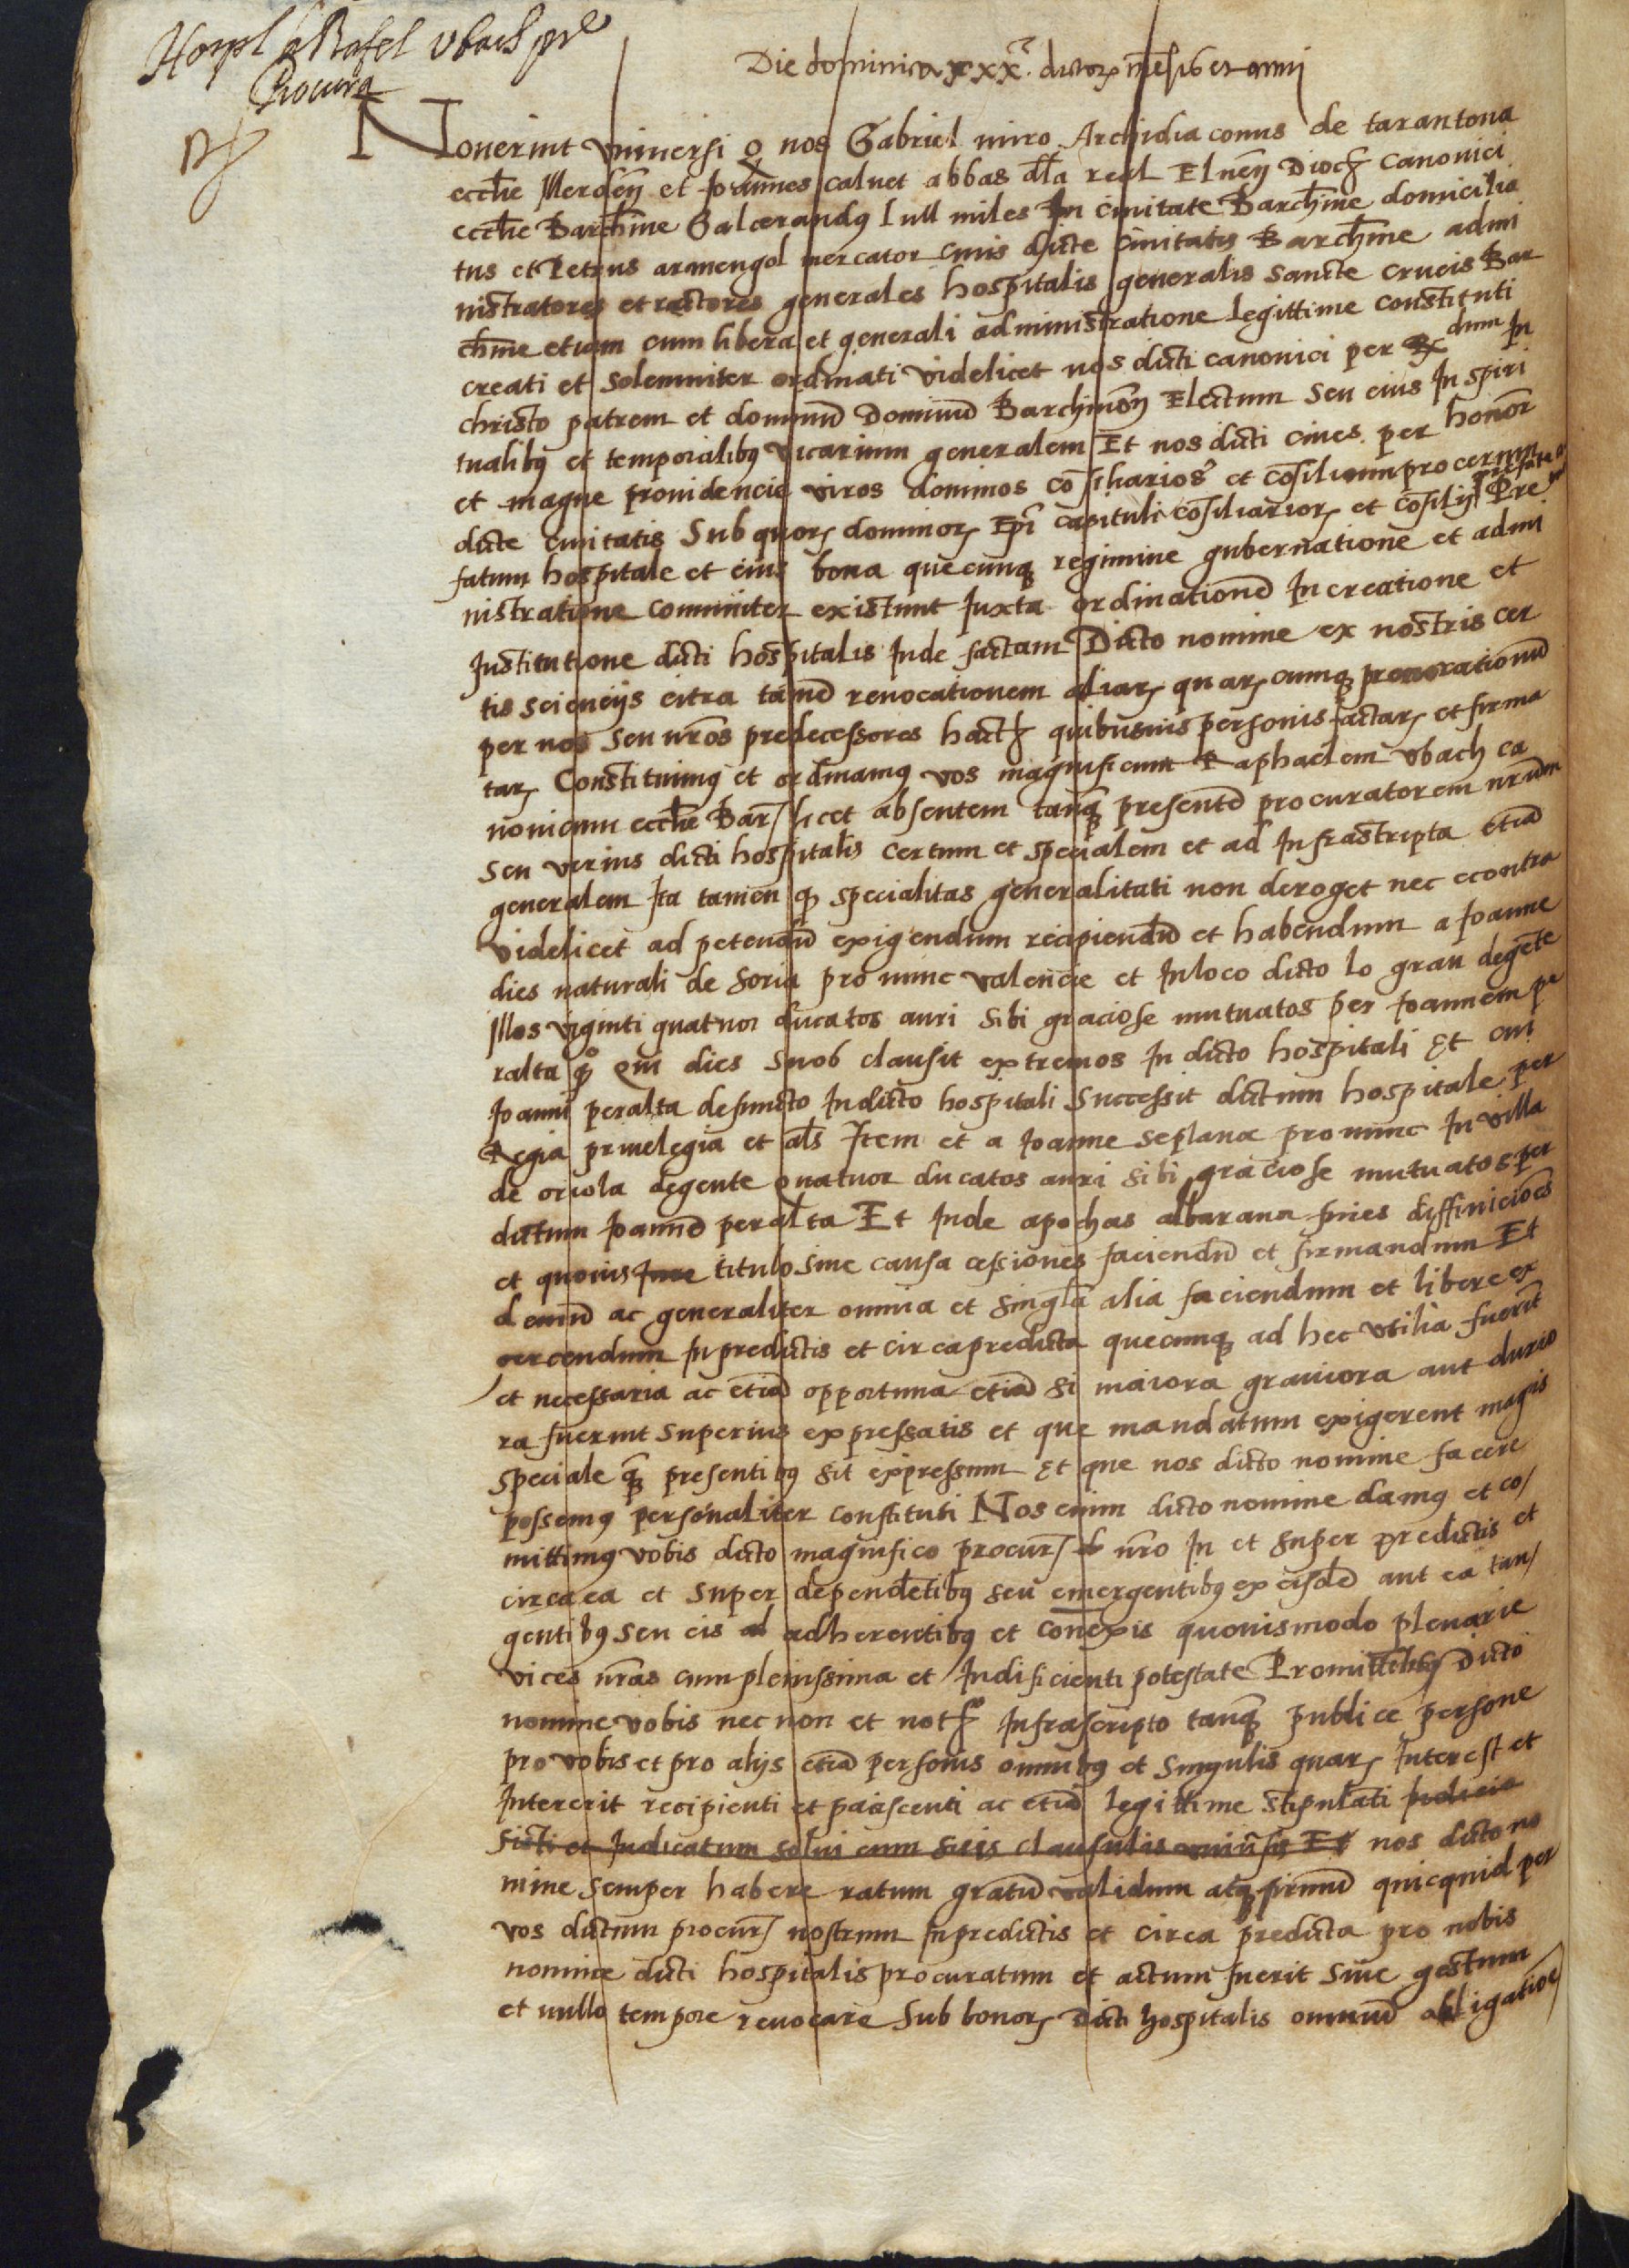 Hospl a Rafel Ubach pre
Procura
Die dominica xxx. dictorum mensis et anni
Noverint universi q nos Gabriel miro Archidiaconus de tarantona
ecclie Illerdeñ et Joannes calvet abbas dela real Elneñ Dioc canonici
ecclie Barchine Galcerandus lull miles In civitate Barchine domicilia
tus et Petrus armengol mercator civis dicte civitatis Barchine admi
nistratores et rectores generales hospitalis generalis sancte crucis Bar
chine etiam cum libera et generali administratione legittime constituti
creati et solemniter ordinati videlicet nos dicti canonici per R dum In
christo patrem et dominū Dominū Barchinoñ Electum seu eius In spiri
tualibus et temporalibus vicarium generalem Et nos dicti cives per honor
et magne providencie viros dominos cōsiliarios et cōsilium procerum
dicte civitatis Sub quorum dominorum Epi capituli cōsiliariorum et cōsilij prefate Pre
fatum hospitale et eius bona quecunq regimine gubernatione et admi
nistratione comuniter existunt Juxta ordinationē In creatione et
Institutione dicti hospitalis Inde factam Dicto nomine ex nostris cer
tis scienciis citra tamē revocationem aliarum quarumcumq procurationū
per nos seu nros predecessores hacte quibusvis personis factarum et firma
tarum Constituimus et ordinamus vos magnificum Raphaelem Ubach ca
nonicum ecclie Bar licet absentem tanq presentē procuratorem nrūm
seu verius dicti hospitalis certum et specialem et ad Infrascripta etiā
generalem Ita tamen q specialitas generalitati non deroget nec econtra
videlicet ad petendū exigendum recipiendū et habendum a Joanne
dies naturali de Soria pro nunc valencie et In loco dicto lo grau degēte
Illos viginti quatuor ducatos auri sibi graciose mutuatos per Joannem pe
ralta q° qui dies suos clausit extremos In dicto hospitali Et cui
Joanni peralta defuncto In dicto hospitali Successit dictum hospitale per
Regia privelegia et als Item et a Joanne seplana pro nunc In villa
de oriola degente quatuor ducatos auri sibi graciose mutuatos per
dictum Joannē peralta Et Inde apochas albarana fines diffiniciōes
et quovis Iure titulo sive causa cessiones faciendū et firmandum Et
demū ac generaliter omnia et singula alia faciendum et libere ex
oercendum In predictis et circa predicta quecunq ad hec utilia fuerīt
et necessaria ac etiā opportuna etiā si maiora graviora aut durio
ra fuerint superius expressatis et que mandatum exigerent magis
speciale q presentibus sit expressum Et que nos dicto nomine facere
possemus personaliter constituti Nos enim dicto nomine damus et co/
mittimus vobis dicto magnifico procur nro In et super predictis et
circa ea et super dependētibus seu emergentibus ex eisdē aut ea tan/
gentibus seu eis ad adherentibus et conexis quovismodo plenarie
vices nras cum plenissima et Indificienti potestate Promittētes Dicto
nomine vobis nec non et not Infrascripto tanq publice persone
pro vobis et pro alijs etiā personis omnibus et singulis quarum Interest et
Intererit recipienti et paciscenti ac etiā legittime stipulati Iudicio
sisti et Iudicatum solvi cum suis clausulis universis Et nos dicto no
mine semper habere ratum gratū validum atq firmū quicquid per
vos dictum procur nostrum In predictis et circa predicta pro nobis
nomine dicti hospitalis procuratum et actum fuerit sive gestum
et nullo tempore revocare Sub bonorum Dicti hospitalis omniū obligatiōe